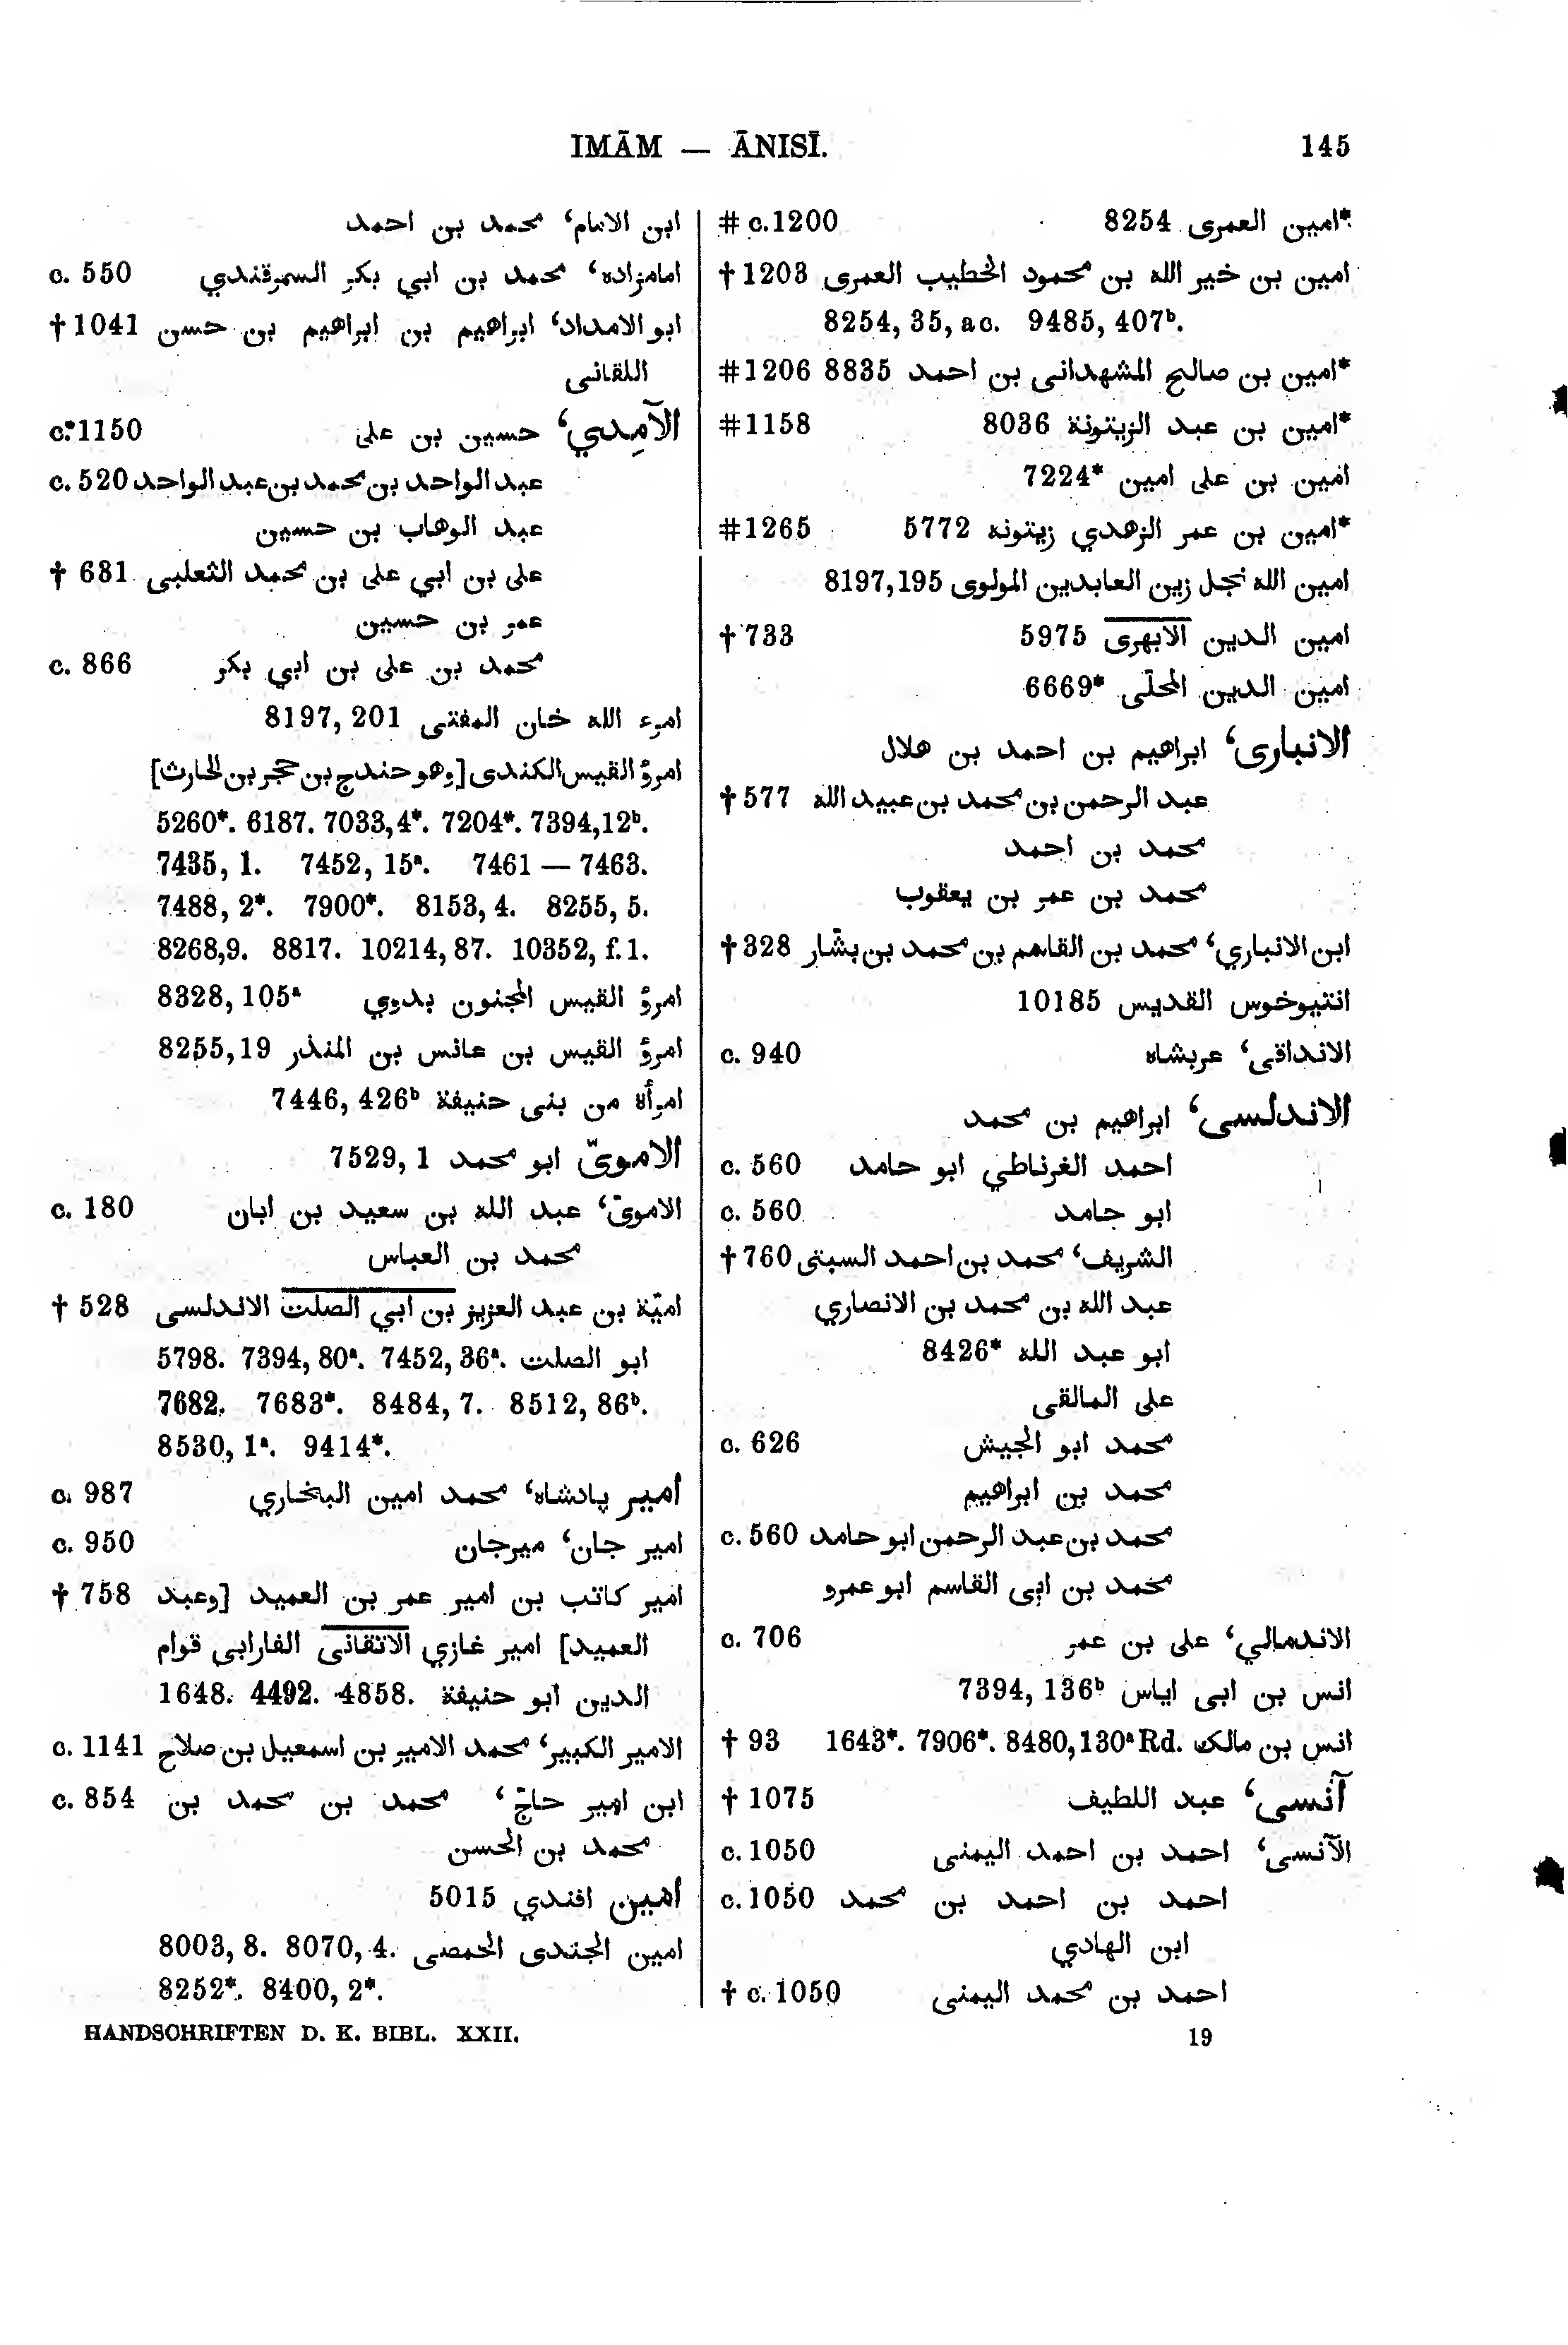 IMĀM — ĀNISĪ. 145
ابن الامام، محمد بن احمد
امامزاده، محمد بن ابي بكر السمرقندي c. 550
ابو الامداد، ابراهيم بن ابراهيم بن حسن †1041
اللقانى
الآمِدي، حسين بن على c. 1150
عبد الواحد بن محمد بن عبد الواحد c. 520
عبد الوهاب بن حسين
على بن ابي على بن محمد الثعلبى † 681
عمر بن حسين
محمد بن على بن ابي بكر c. 866
امرء الله خان المفتى 8197, 201
امرؤ القيس الكندى [وهو حندج بن حجر بن الحارث]
5260*. 6187. 7033,4*. 7204*. 7394,12ᵇ.
7435, 1. 7452, 15ᵃ. 7461 — 7463.
7488, 2*. 7900*. 8153, 4. 8255, 5.
8268,9. 8817. 10214, 87. 10352, f. 1.
امرؤ القيس المجنون بدوي 8328, 105ᵃ
امرؤ القيس بن عانس بن المنذر 8255,19
امرأة من بنى حنيفة 7446, 426ᵇ
الاموىّ ابو محمد 7529, 1
الاموىّ، عبد الله بن سعيد بن ابان c. 180
محمد بن العباس
اميّة بن عبد العزيز بن ابي الصلت الاندلسى † 528
ابو الصلت 5798. 7394, 80ᵃ. 7452, 36ᵃ.
7682. 7683*. 8484, 7. 8512, 86ᵇ.
8530, 1ᵃ. 9414*.
أمير پادشاه، محمد امين البخاري c. 987
امير جان، ميرجان c. 950
امير كاتب بن امير عمر بن العميد [وعبد † 758
العميد] امير غازي الاتقانى الفارابى قوام
الدين ابو حنيفة 1648. 4492. 4858.
الامير الكبير، محمد الامير بن اسمعيل بن صلاح c. 1141
ابن امير حاجّ، محمد بن محمد بن c. 854
محمد بن الحسن
أمين افندي 5015
امين الجندى الحمصى 8003, 8. 8070, 4.
8252*. 8400, 2*.
*امين العمرى 8254 # c.1200
امين بن خير الله بن محمود الخطيب العمرى †1203
8254, 35, ac. 9485, 407ᵇ.
*امين بن صالح المشهدانى بن احمد 8835 #1206
*امين بن عبد الزيتونة 8036 #1158
امين بن على امين 7224*
*امين بن عمر الزهدي زيتونه 5772 #1265
امين الله نجل زين العابدين المولوى 8197,195
امين الدين الابهرى 5975 † 733
امين الدين المحلّى 6669*
الانبارى، ابراهيم بن احمد بن هلال
عبد الرحمن بن محمد بن عبيد الله †577
محمد بن احمد
محمد بن عمر بن يعقوب
ابن الانباري، محمد بن القاسم بن محمد بن بشّار †328
انتيوخوس القديس 10185
الانداقى، عربشاه c. 940
الاندلسى، ابراهيم بن محمد
احمد الغرناطي ابو حامد c. 560
ابو حامد c. 560
الشريف، محمد بن احمد السبتى †760
عبد الله بن محمد بن الانصاري
ابو عبد الله 8426*
على المالقى
محمد ابو الجيش c. 626
محمد بن ابراهيم
محمد بن عبد الرحمن ابو حامد c. 560
محمد بن ابى القاسم ابو عمرو
الاندمالي، على بن عمر c. 706
انس بن ابى اياس 7394, 136ᵇ
انس بن مالك 1643*. 7906*. 8480,130ᵃ Rd. † 93
آنسى، عبد اللطيف † 1075
الآنسى، احمد بن احمد اليمنى c. 1050
احمد بن احمد بن محمد c. 1050
ابن الهادي
احمد بن محمد اليمنى † c. 1050
HANDSCHRIFTEN D. K. BIBL. XXII. 19